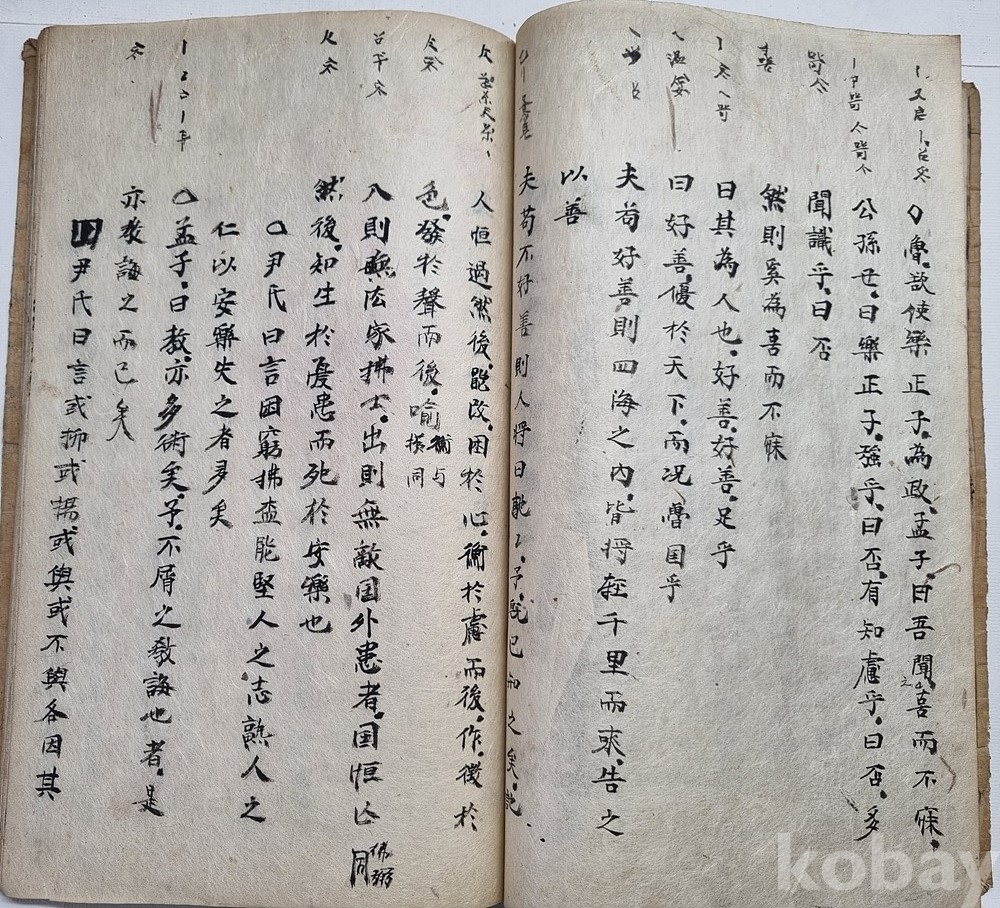 魯欲使樂正子為政孟子曰吾聞之喜而不寐
公孫丑曰樂正子強乎曰否有知慮乎曰否多
聞識乎曰否
然則奚為喜而不寐
曰其為人也好善好善足乎
曰好善優於天下而况魯国乎
夫苟好善則四海之內皆将軽千里而来告之
以善
夫苟不好善則人将曰訑訑予既已知之矣訑
人恒過然後能改困於心衡於慮而後作徵於
色發於聲而後喻衡与橫同
入則無法家拂士出則無敵国外患者国恒亡拂弼同
然後知生於憂患而死於安樂也
尹氏曰言困窮拂盃能堅人之志熟人之
仁以安樂失之者多矣
孟子曰教亦多術矣予不屑之敎誨也者是
亦教誨之而已矣
尹氏曰言或抑或揚或與或不與各因其
kobay